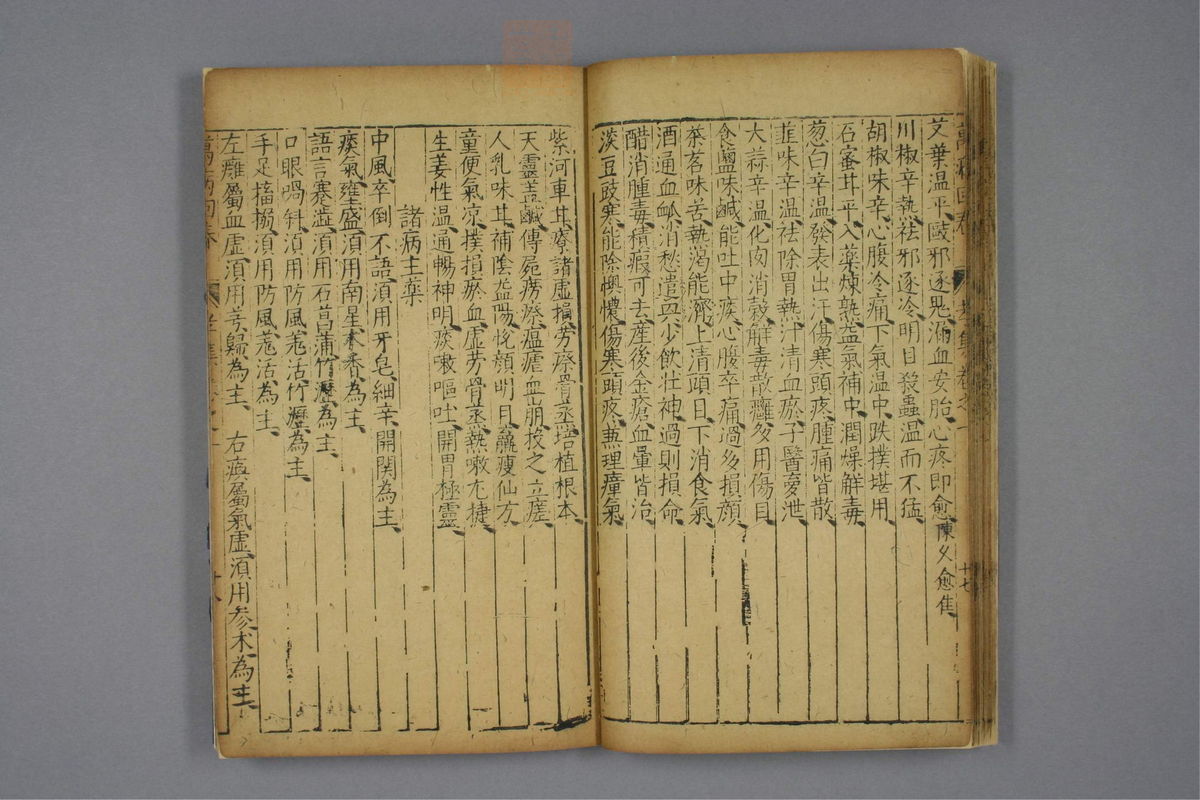 艾葉温平、敺邪逐鬼、漏血安胎、心疼即愈、陳久愈佳
川椒辛熱、祛邪逐冷、明目殺蟲、温而不猛、
胡椒味辛、心腹冷痛、下氣温中、跌撲堪用、
石蜜甘平、入藥煉熟、益氣補中、潤燥解毒、
葱白辛温、發表出汗、傷寒頭疼、腫痛皆散、
韭味辛温、祛除胃熱、汁清血瘀、子醫夢泄、
大蒜辛温、化肉消穀、解毒散癰、多用傷目、
食鹽味鹹、能吐中痰、心腹卒痛、過多損顔、
茶茗味苦、熱渴能濟、上清頭目、下消食氣、
酒通血脉、消愁遣興、少飲壯神、過則損命、
醋消腫毒、積瘕可去、産後金瘡、血暈皆治、
淡豆豉寒、能除懊憹、傷寒頭疼、兼理瘴氣、
紫河車甘、療諸虚損、劳瘵骨蒸、培植根本、
天靈盖鹹、傳屍劳瘵、瘟瘧血崩、投之立瘥、
人乳味甘、補陰益陽、悅顔明目、羸瘦仙方、
童便氣凉、撲損瘀血、虚劳骨蒸、熱嗽尤捷、
生姜性温、通暢神明、痰嗽嘔吐、開胃極靈、
諸病主藥
中風卒倒不語、須用牙皂、細辛、開関為主、
痰氣壅盛、須用南星、木香為主、
語言蹇澁、須用石菖蒲、竹瀝為主、
口眼喎斜、須用防風、羌活、竹瀝為主、
手足搐搦、須用防風、羌活為主、
左癱屬血虚、須用芎歸為主、 右瘓屬氣虚、須用參术為主、